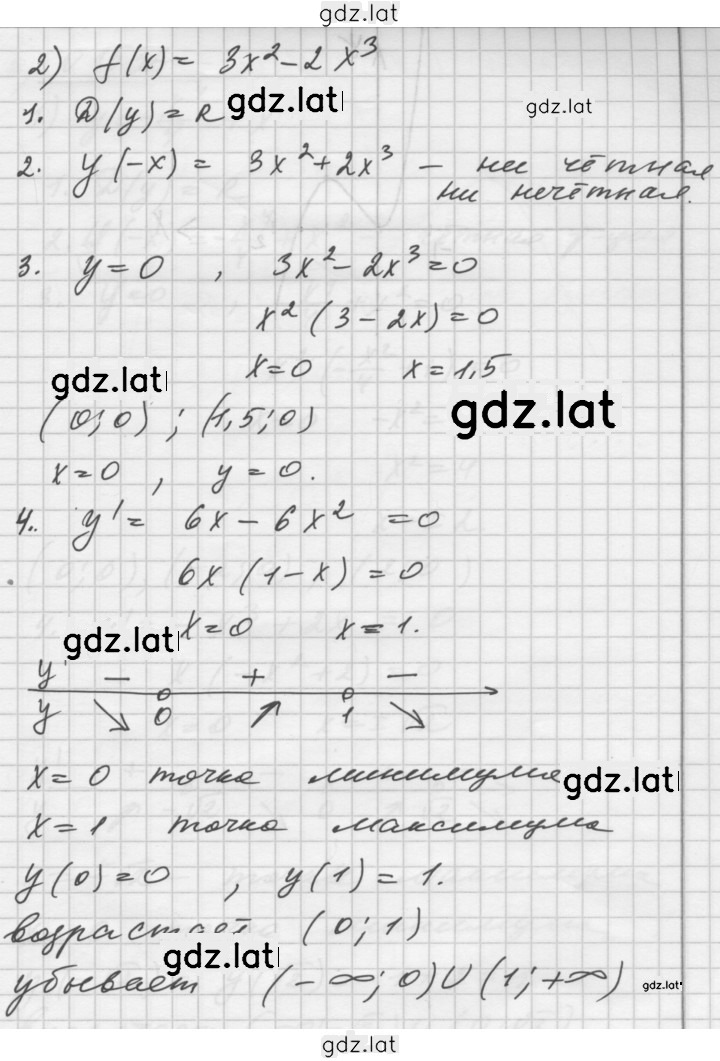 gdz.lat
2) f(x) = 3x² - 2x³
1. D(y) = R gdz.lat gdz.lat
2. y(-x) = 3x² + 2x³ — ни чётная
ни нечётная.
3. y = 0 , 3x² - 2x³ = 0
x² (3 - 2x) = 0
x = 0 x = 1,5
gdz.lat gdz.lat
(0; 0) ; (1,5; 0)
x = 0 , y = 0.
4. y' = 6x - 6x² = 0
6x (1 - x) = 0
gdz.lat x = 0 x = 1.
y' — + —
y ↘ 0 ↗ 1 ↘
x = 0 точка минимума gdz.lat
x = 1 точка максимума
y(0) = 0 , y(1) = 1.
возрастает (0; 1)
gdz.lat
убывает (-∞; 0) ∪ (1; +∞) gdz.lat
gdz.lat